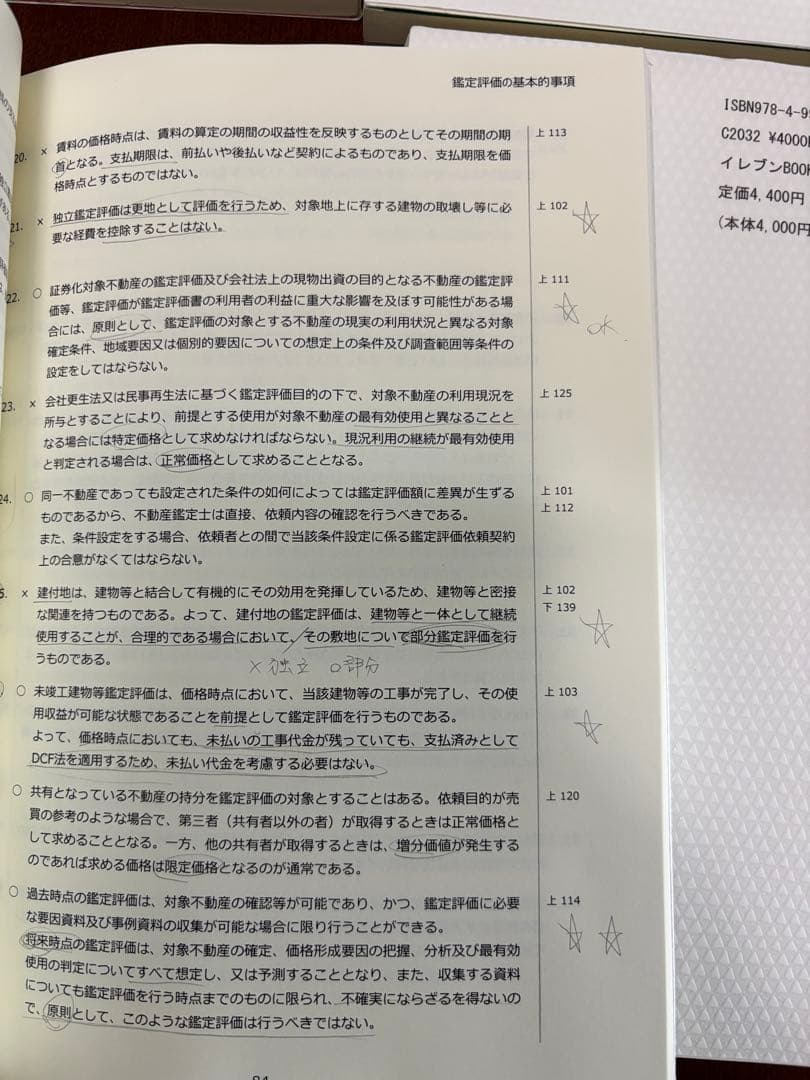 鑑定評価の基本的事項
20. × 賃料の価格時点は、賃料の算定の期間の収益性を反映するものとしてその期間の期
首となる。支払期限は、前払いや後払いなど契約によるものであり、支払期限を価
格時点とするものではない。
上 113
21. × 独立鑑定評価は更地として評価を行うため、対象地上に存する建物の取壊し等に必
要な経費を控除することはない。
上 102
22. ○ 証券化対象不動産の鑑定評価及び会社法上の現物出資の目的となる不動産の鑑定評
価等、鑑定評価が鑑定評価書の利用者の利益に重大な影響を及ぼす可能性がある場
合には、原則として、鑑定評価の対象とする不動産の現実の利用状況と異なる対象
確定条件、地域要因又は個別的要因についての想定上の条件及び調査範囲等条件の
設定をしてはならない。
上 111
OK
23. × 会社更生法又は民事再生法に基づく鑑定評価目的の下で、対象不動産の利用現況を
所与とすることにより、前提とする使用が対象不動産の最有効使用と異なることと
なる場合には特定価格として求めなければならない。現況利用の継続が最有効使用
と判定される場合は、正常価格として求めることとなる。
上 125
24. ○ 同一不動産であっても設定された条件の如何によっては鑑定評価額に差異が生ずる
ものであるから、不動産鑑定士は直接、依頼内容の確認を行うべきである。
また、条件設定をする場合、依頼者との間で当該条件設定に係る鑑定評価依頼契約
上の合意がなくてはならない。
上 101
上 112
5. × 建付地は、建物等と結合して有機的にその効用を発揮しているため、建物等と密接
な関連を持つものである。よって、建付地の鑑定評価は、建物等と一体として継続
使用することが、合理的である場合において、その敷地について部分鑑定評価を行
うものである。
× 独立 ○ 部分
上 102
下 139
○ 未竣工建物等鑑定評価は、価格時点において、当該建物等の工事が完了し、その使
用収益が可能な状態であることを前提として鑑定評価を行うものである。
よって、価格時点においても、未払いの工事代金が残っていても、支払済みとして
DCF法を適用するため、未払い代金を考慮する必要はない。
上 103
○ 共有となっている不動産の持分を鑑定評価の対象とすることはある。依頼目的が売
買の参考のような場合で、第三者（共有者以外の者）が取得するときは正常価格と
して求めることとなる。一方、他の共有者が取得するときは、増分価値が発生する
のであれば求める価格は限定価格となるのが通常である。
上 120
○ 過去時点の鑑定評価は、対象不動産の確認等が可能であり、かつ、鑑定評価に必要
な要因資料及び事例資料の収集が可能な場合に限り行うことができる。
将来時点の鑑定評価は、対象不動産の確定、価格形成要因の把握、分析及び最有効
使用の判定についてすべて想定し、又は予測することとなり、また、収集する資料
についても鑑定評価を行う時点までのものに限られ、不確実にならざるを得ないの
で、原則として、このような鑑定評価は行うべきではない。
上 114
ISBN978-4-9
C2032 ¥4000
イレブンBOO
定価4,400円
(本体4,000円